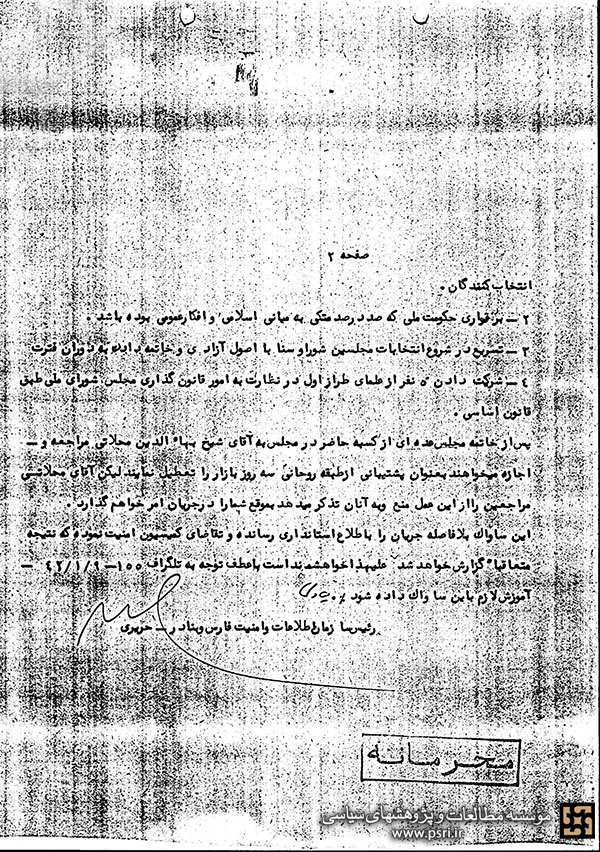 صفحه ۲
انتخاب کنندگان .
۲ – برقراری حکومت ملی که صد درصد متکی به مبانی اسلامی و افکار عمومی بوده باشد .
۳ – تسریع در شروع انتخابات مجلسین شورا و سنا با اصول آزادی و خاتمه دادن به دوران فترت
٤ – شرکت دادن ۵ نفر از علمای طراز اول در نظارت به امور قانون گذاری مجلس شورای ملی طبق
قانون اساسی .
پس از خاتمه مجلس عده ای از کسبه حاضر در مجلس به آقای شیخ بهاء الدین محلاتی مراجعه و –
اجازه میخواهند بعنوان پشتیبانی از طبقه روحانی سه روز بازار را تعطیل نمایند لیکن آقای محلاتی
مراجعین را از این عمل منع و به آنان تذکر میدهد بموقع شما را در جریان امر خواهم گذارد .
این ساواک بلافاصله جریان را با طلاع استانداری رسانده و تقاضای کمیسیون امنیت نموده که نتیجه
متعاقباً گزارش خواهد شد علیهذا خواهشمند است با عطف توجه به تلگراف ۱۵۵ – ۴۲/۱/۹ –
آموزش لازم باین ساواک داده شود
رئیس سازمان اطلاعات و امنیت فارس و بنادر – حریری
محرمانه
موسسه مطالعات و پژوهشهای سیاسی
www.psri.ir